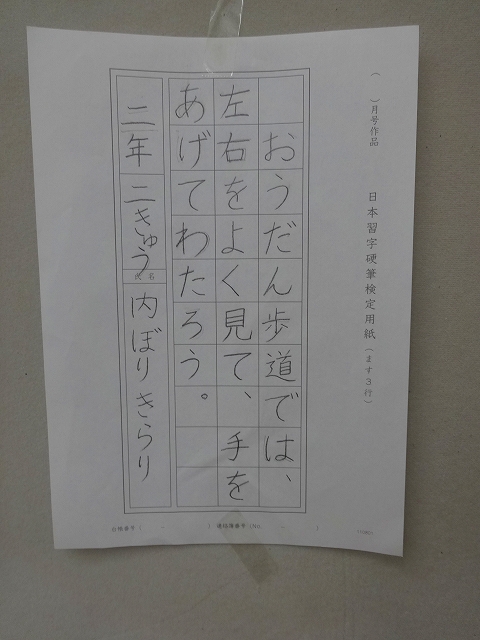 （　　）月号作品
日本習字硬筆検定用紙（ます3行）
おうだん歩道では、
左右をよく見て、手を
あげてわたろう。
二年
二きゅう
氏名
内ぼりきらり